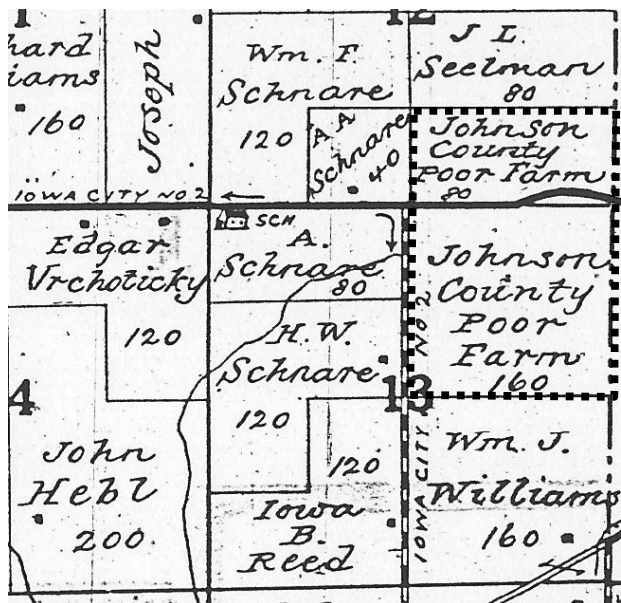 12
hard
iams
160
Joseph
Wm. F.
Schnare
120
A A
Schnare
40
J L.
Seelman
80
Johnson
County
Poor Farm
80
IOWA CITY NO 2
SCH.
Edgar
Vrchoticky
120
A.
Schnare
80
Johnson
County
Poor
Farm
160
H. W.
Schnare
120
13
IOWA CITY NO 2
4
John
Hebl
200.
120
Iowa
B.
Reed
Wm. J.
Williams
160